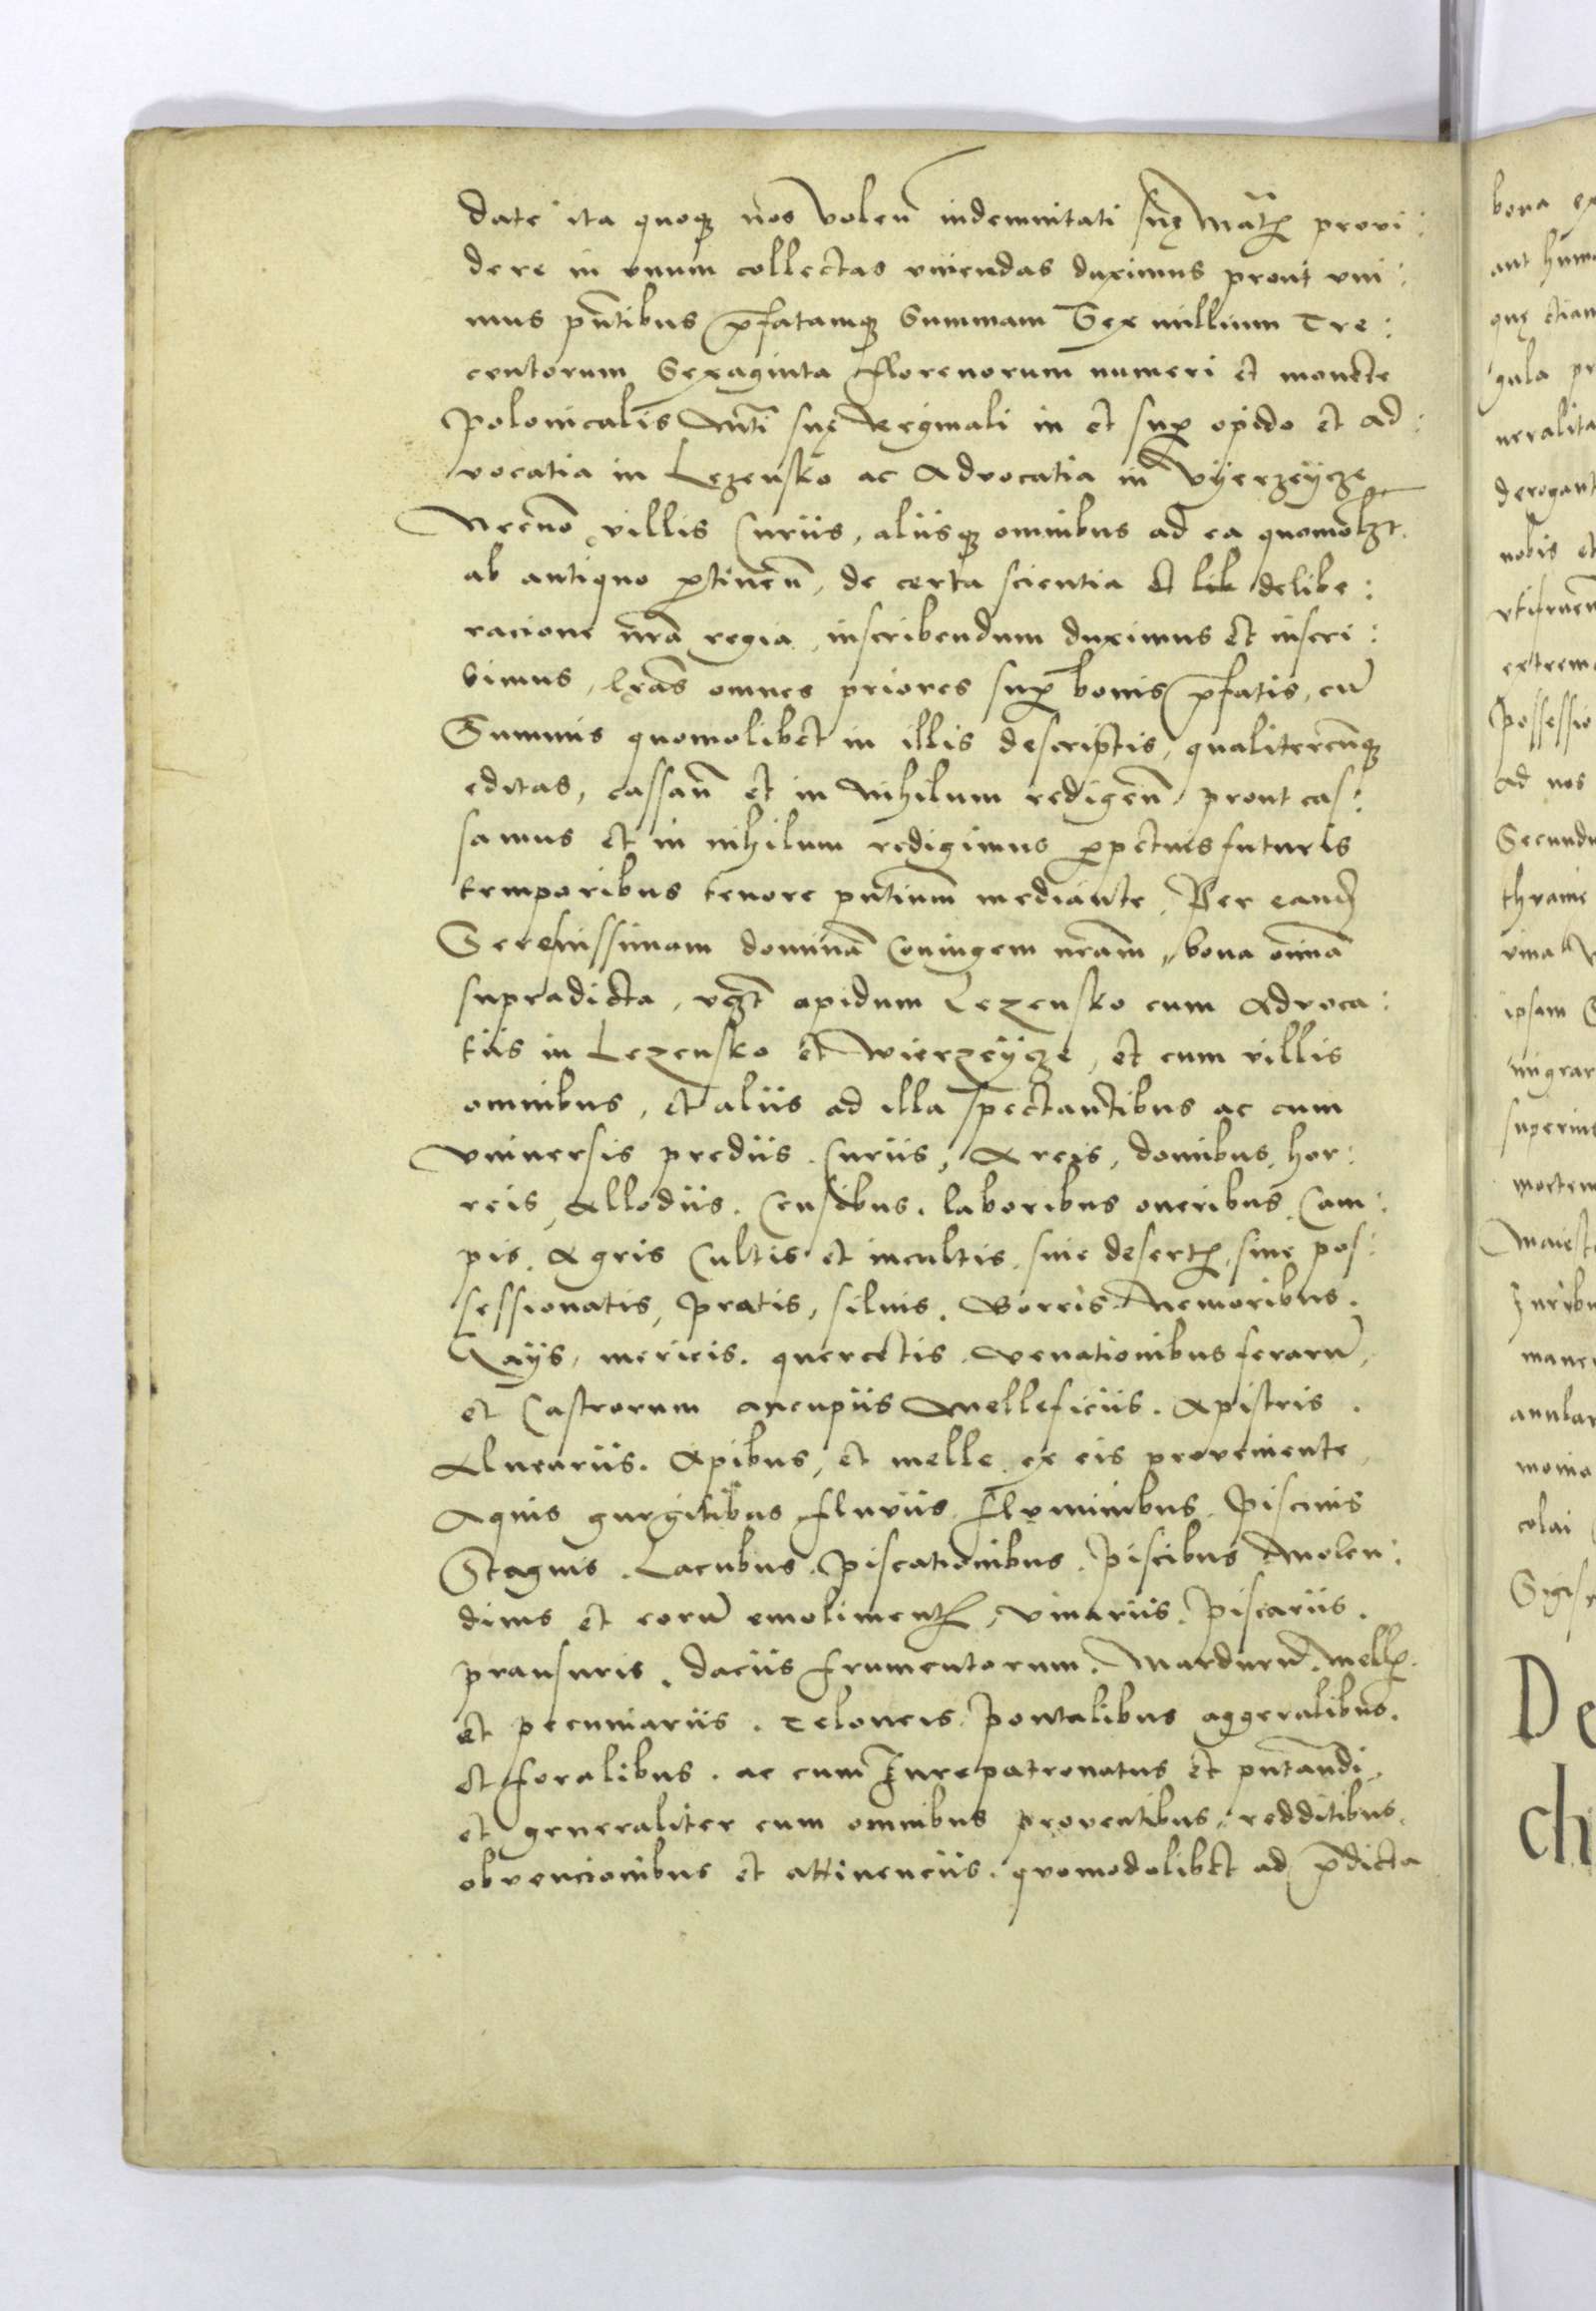 date ita quoqꝫ nos volen̄ indemnitati suę Ma̅tꝭ provi:
dere in vnum collectas vniendas duximus prout vni:
mus pn̄tibus p̄fatamqꝫ Summam Sex millium Tre:
centorum Sexaginta florenorum numeri et monete
Polonicalis M̅ti suę Reginali in et suꝑ opido et Ad:
vocatia in Lezensko ac Advocatia in Vyerzeycze
Necnō villis Curiis, aliisqꝫ omnibus ad ea quomolꝫt.
ab antiquo ꝑtinen̄, de certa scientia et lib delibe:
racione nr̄a regia, inscribendum duximus et inscri:
bimus, lr̄as omnes priores suꝑ bonis p̄fatis, cū
Summis quomolibet in illis descriptis, qualitercunqꝫ
editas, cassan̄ et in Nihilum redigen̄ prout cas:
samus et in nihilum redigimus ꝑpetuis futuris
temporibus tenore pn̄tium mediante. Per eandꝫ
Serenissimam dominā Coniugem nr̄am, bona omīa
supradicta, vꝫt opidum Lezensko cum Advoca:
tiis in Lezensko et Wierzeycze, et cum villis
omnibus, et aliis ad illa spectantibus ac cum
Vniversis prediis. Curiis, Areis, domibus, hor:
reis, Allodiis. Censibus. laboribus oneribus, Cam:
pis. Agris Cultis et incultis, siue desertꝭ, siue pos:
sessionatis, Pratis, siluis. Borris Nemoribus.
Gays, mericis. quercetis. Venationibus ferarū,
et Castrorum aucupiis Mellificiis. Apistris.
Aluearıis. Apibus, et melle ex eis proveniente,
Aquis gurgitibus fluviis, fluminibus. Piscinis
Stagnis. Lacubus. Piscationibus. Piscibus Molen:
dinis et eorū emolimentꝭ, Vinariis. Piscariis.
pransuris. daciis frumentorum. Mardurū. Mellꝭ.
et pecuniariis. Teloneis. Pontalibus aggeralibus.
et foralibus. ac cum Iurepatronatus et pn̄tandi,
et generaliter cum omnibus proventibus, redditibus.
obvencionibus et attinenciis. quomodolibet ad p̄dicta